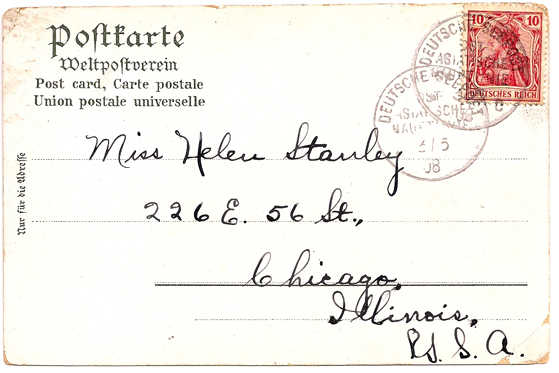 Postkarte
Weltpostverein
Post card, Carte postale
Union postale universelle
Nur für die Adresse
10 10
DEUTSCHES REICH
DEUTSCHE
DEUTSCHE
3/5
08
Miss Helen Stanley
226 E. 56 St.,
Chicago,
Illinois,
U. S. A.